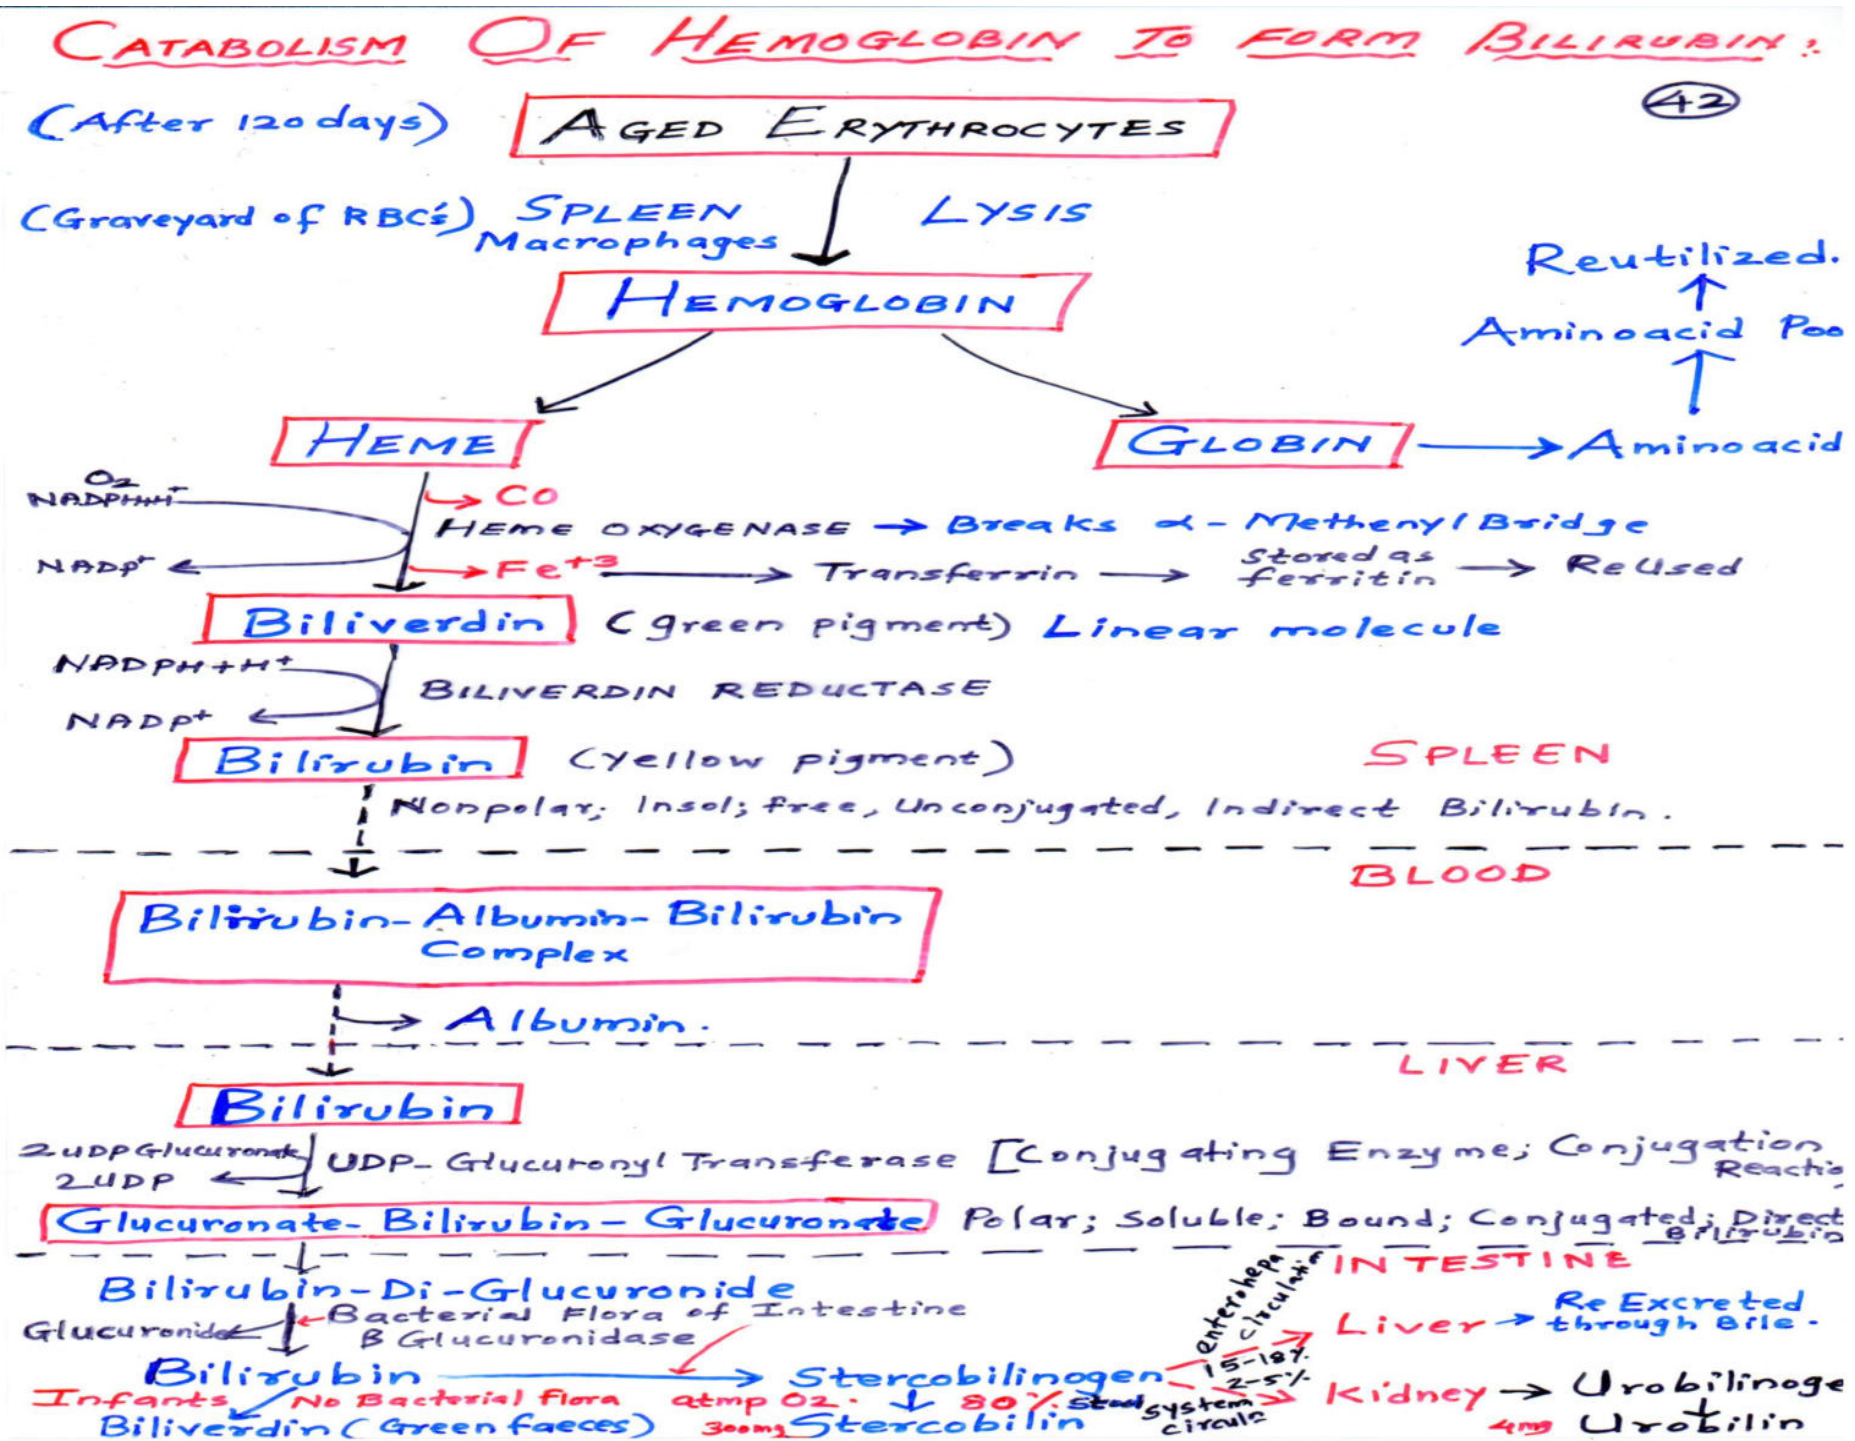 CATABOLISM OF HEMOGLOBIN TO FORM BILIRUBIN:
42
(After 120 days)
AGED ERYTHROCYTES
(Graveyard of RBC's)
SPLEEN
Macrophages
LYSIS
HEMOGLOBIN
Reutilized.
Aminoacid Poo
HEME
GLOBIN
Aminoacid
O2
NADPH+H+
CO
HEME OXYGENASE → Breaks α-Methenyl Bridge
NADP+
Fe+3 → Transferrin → Stored as ferritin → ReUsed
Biliverdin (green pigment) Linear molecule
NADPH+H+
BILIVERDIN REDUCTASE
NADP+
Bilirubin (yellow pigment)
SPLEEN
Nonpolar; Insol; free, Unconjugated, Indirect Bilirubin.
BLOOD
Bilirubin-Albumin-Bilirubin
Complex
Albumin.
LIVER
Bilirubin
2UDP Glucuronate
2UDP
UDP-Glucuronyl Transferase [Conjugating Enzyme; Conjugation
Reactio
Glucuronate-Bilirubin-Glucuronate Polar; Soluble; Bound; Conjugated; Direct
Bilirubin
INTESTINE
Bilirubin-Di-Glucuronide
Glucuronide
Bacterial Flora of Intestine
B Glucuronidase
enterohepa
circulation
Liver → Re Excreted
through Bile.
Bilirubin → Stercobilinogen
15-18%
2-5%
system
circuln
Kidney → Urobilinoge
Infants No Bacterial flora
atmp O2. 80% Stool
Biliverdin (Green faeces)
300mg Stercobilin
4mg Urobilin